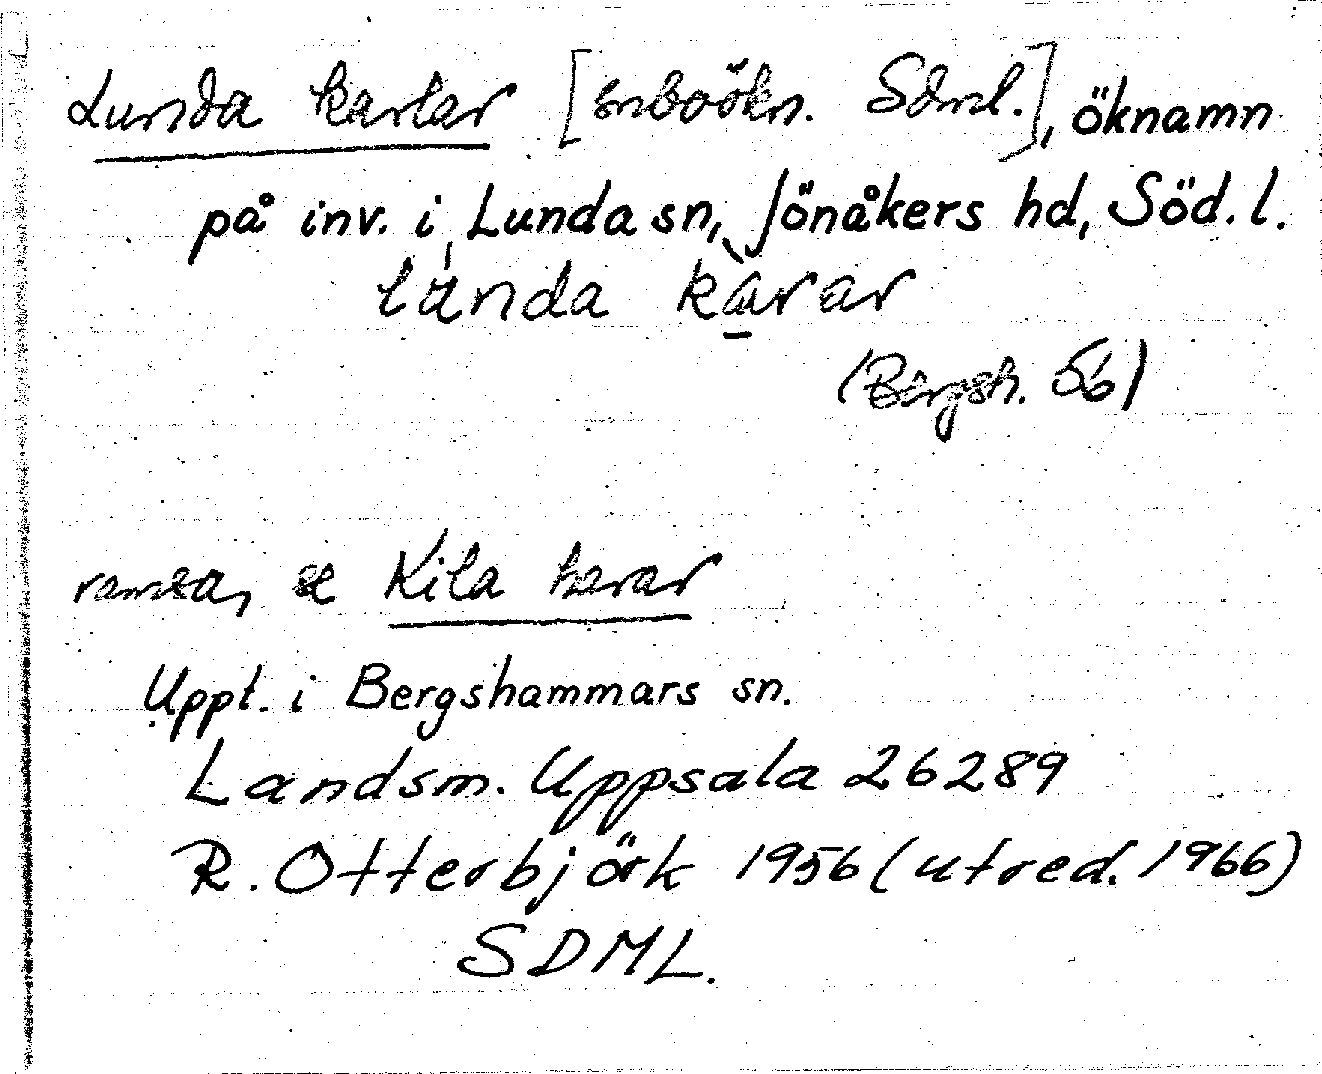 Lunda karlar [inboökn. Sdml.], öknamn
på inv. i Lunda sn, Jönåkers hd, Söd. l.
lunda karar
(Bergsh. 56)
ramsa, se Kila karar
Uppt. i Bergshammars sn.
Landsm. Uppsala 26289
R. Otterbjörk 1956 (utred. 1966)
SDML.